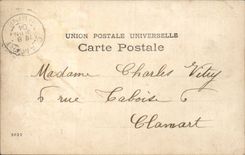 UNION POSTALE UNIVERSELLE
Carte Postale
Madame Charles Vitry
6 rue
Clamart